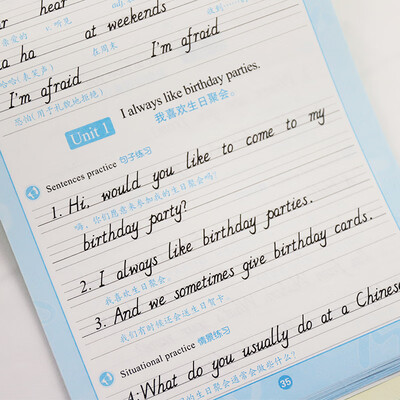 hear
r, 听见
at weekends
在周末
a ha
哈哈(表笑声)
I'm afraid I'm afraid
恐怕(用于礼貌地拒绝)
Unit 1 I always like birthday parties.
我喜欢生日聚会。
Sentences practice 句子练习
1. Hi, would you like to come to my
嗨, 你们愿意来参加我的生日聚会吗?
birthday party?
2. I always like birthday parties.
我喜欢生日聚会。
3. And we sometimes give birthday cards.
我们有时候还会送生日贺卡。
Situational practice 情景练习
A: What do you usually do at a Chinese
生日聚会通常会做些什么?
35